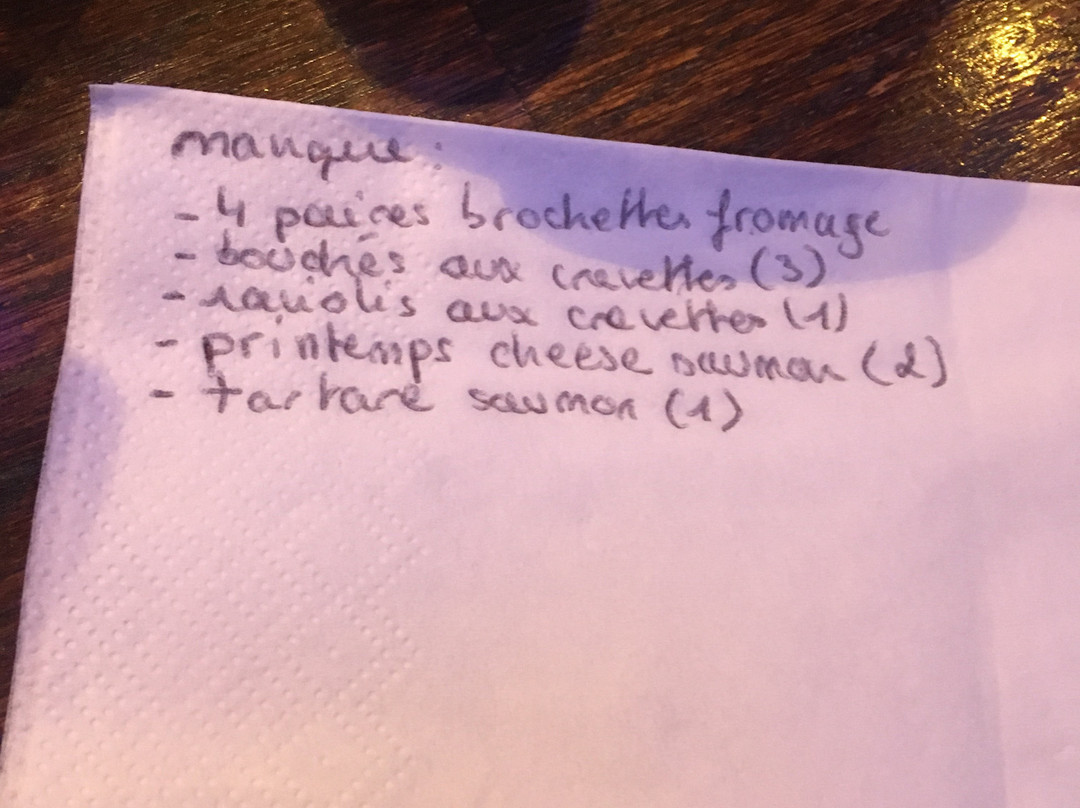 manque :
- 4 paires brochettes fromage
- bouchés aux crevettes (3)
- raviolis aux crevettes (1)
- printemps cheese saumon (2)
- tartare saumon (1)